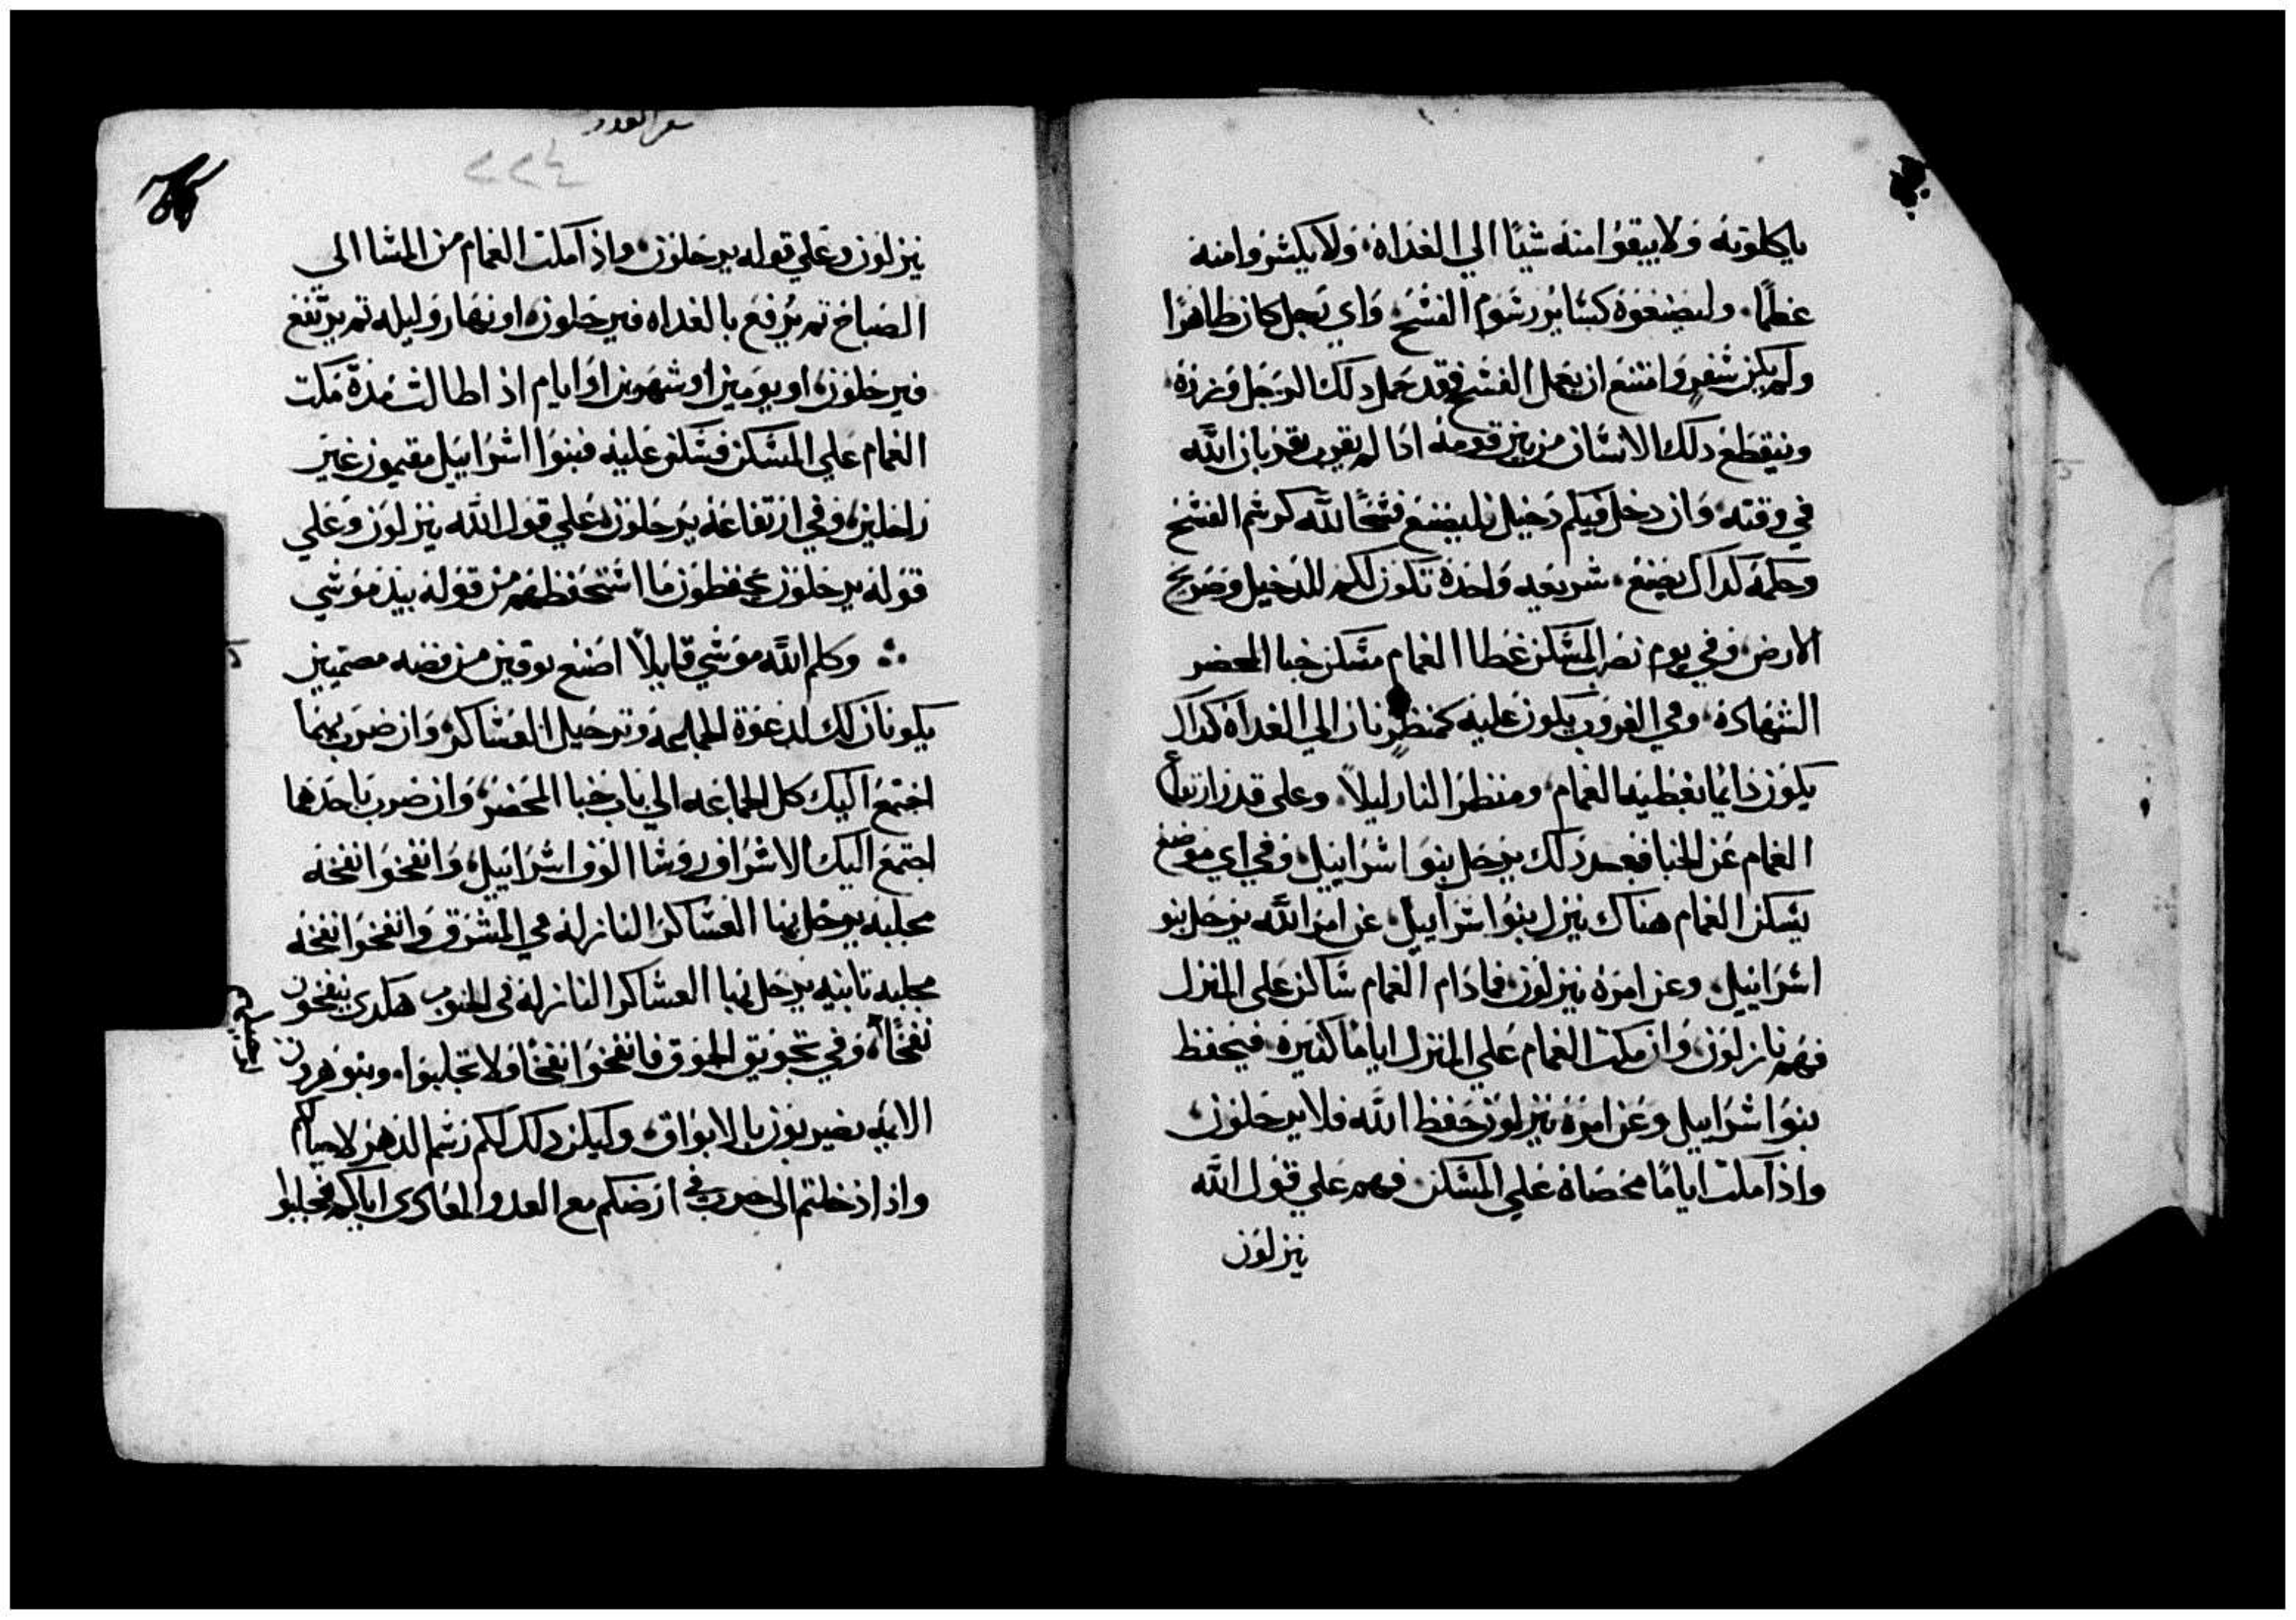 ياكلونه ولا يبقوا منه شيًا الي الغداه، ولا يكسروا منه
عظمًا، وليصنعوه كسايُر رسوم الفسح، واي رجل كان طاهرًا
ولم يكن سَفرٍ وامتنع ان يعمل الفسح فقد حمل دلك الرجل وزره،
وينقطع دلك الانسان من بين قومه ادا لم يقرب قربان الله
في وقته، وان دخل فيكم دخيل فليصنع فسحًا لله كرسم الفسح
وحكمه كداك يصنع، شريعه واحده تكون لكم للدخيل وصريح
الارض، وفي يوم نصب المسكن غطا الغمام مسكن خبا المحضر
الشهاده، وفي الغروب يكون عليه كمنظر نار الي الغداه كداك
يكون دايمًا يغطيه الغمام، ومنظر النار ليلاً، وعلي قدر ارتفاع
الغمام عن الخبا فبعد دلك يرحل بنوا اسراييل، وفي اي موضع
يسكن الغمام هناك ينزل بنوا اسراييل، عن امر الله يرحل بنو
اسراييل، وعن امره ينزلون، فادام الغمام ساكن علي المنزل
فهم نازلون، وان مكت الغمام علي المنزل ايامًا كتيره، فيحفظ
بنوا اسراييل وعن امره ينزلون حفظ الله فلا يرحلون،
واذا مكت ايامًا محصاه علي المسكن، فهم علي قول الله
ينزلون
سفر العدد
٢٢٤
ينزلون وعلي قوله يرحلون، واذا مكت الغمام من المسا الي
الصباح تم يرفع بالغداه فيرحلون، او نهار وليله تم يرتفع
فيرحلون، او يومين او شهرين او ايام اذ اطالت مدة مكت
الغمام علي المسكن فسكن عليه فبنوا اسراييل مقيمون غير
راحلين، وفي ارتفاعه يرحلون، علي قول الله ينزلون وعلي
قوله يرحلون يحفظون ما استحفظهم من قوله بيد موسي
وكلم الله موسي قايلاً اصنع بوقين من فضه مصمتين
يكونان لك لدعوة الجماعه وترحيل العساكر، وان ضرب بهما
اجتمع اليك كل الجماعه الي باب خبا المحضر، وان ضرب باحدهما
اجتمع اليك الاشراف روسا الوف اسراييل، وانفخوا نفخه
مجلبه يرحل بها العساكر النازله في المشرق وانفخوا نفخه
مجلبه تانيه يرحل بها العساكر النازله في الجنوب هكدي ينفخون
نفخًا، وفي تجويق الجوق فانفخوا نفخًا ولا تجلبوا، وبنو هرون
الايمه يضربون بالابواق، وليكن دلك لكم رسم الدهر لاجيالكم
واذا دخلتم الي حرب في ارضكم مع العدو المعادي اياكم فجلبوا